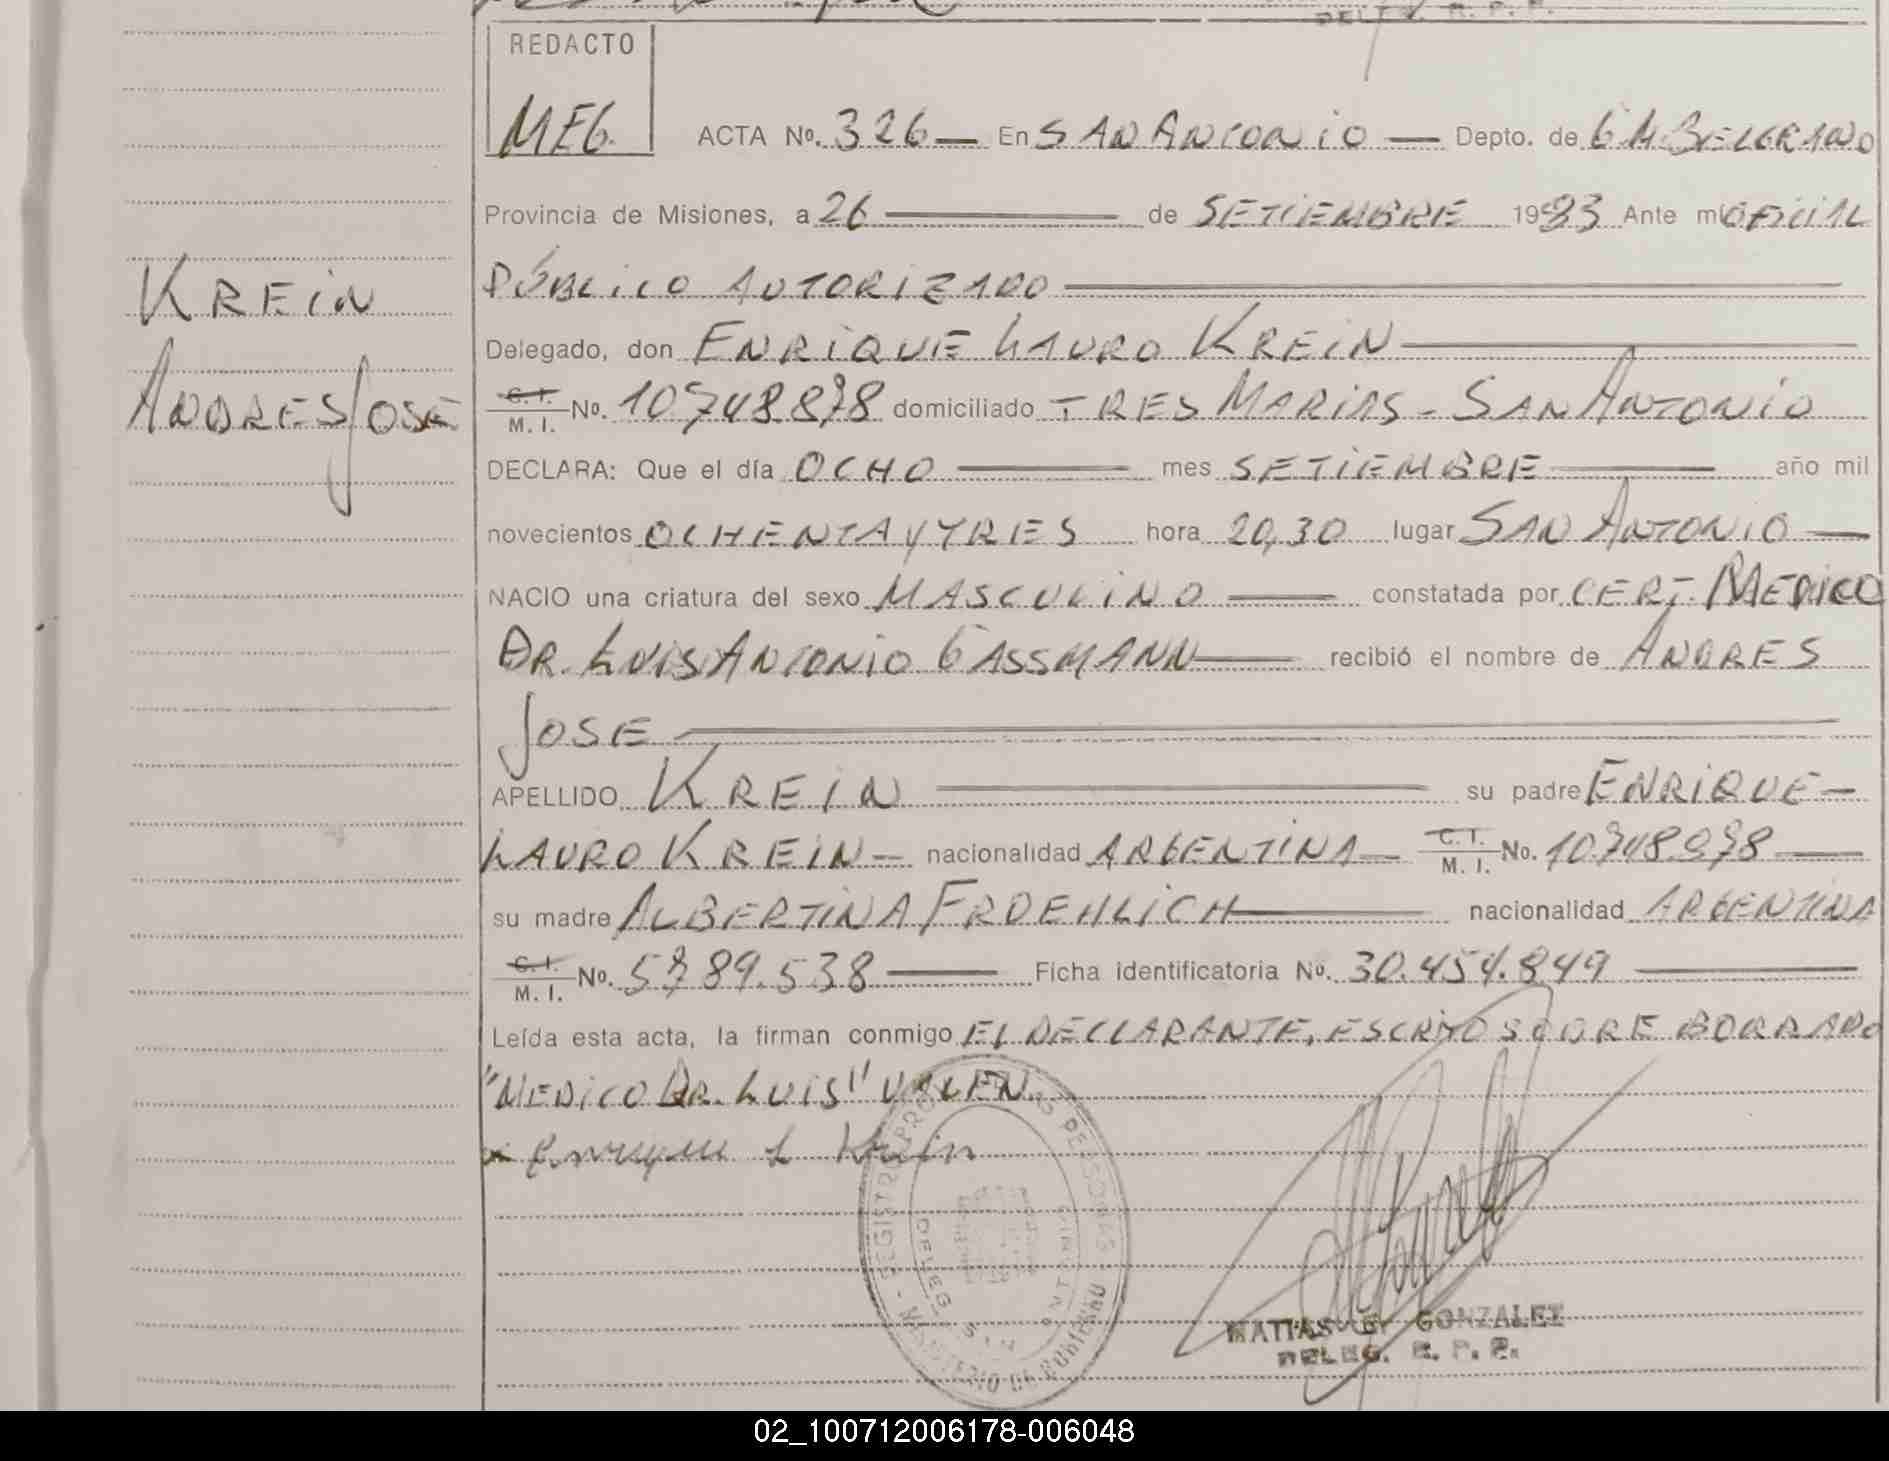 DELEG. R. P. P.
REDACTO
MEG.
ACTA No. 326 — En SAN ANTONIO — Depto. de G.M. BELGRANO
Provincia de Misiones, a 26 — de SETIEMBRE 1983 Ante mí OFICIAL
PÚBLICO AUTORIZADO
KREIN
Delegado, don ENRIQUE LAURO KREIN
ANDRES JOSE
C. I.
M. I. No. 10.748.878 domiciliado TRES MARIAS - SAN ANTONIO
DECLARA: Que el día OCHO — mes SETIEMBRE — año mil
novecientos OCHENTA Y TRES hora 20,30 lugar SAN ANTONIO —
NACIO una criatura del sexo MASCULINO — constatada por CERT. MEDICO
DR. LUIS ANTONIO GASSMANN — recibió el nombre de ANDRES
JOSE
APELLIDO KREIN — su padre ENRIQUE —
LAURO KREIN — nacionalidad ARGENTINA — C. I.
M. I. No. 10.748.878 —
su madre ALBERTINA FROEHLICH — nacionalidad ARGENTINA
C. I.
M. I. No. 5.789.538 — Ficha identificatoria No. 30.454.849 —
Leída esta acta, la firman conmigo EL DECLARANTE, ESCRITO SOBRE BORRADO
"MEDICO DR. LUIS" VALEN.
Enrique L Krein
REGISTRO PROV. DE LAS PERSONAS
DELEG.
MINISTERIO DE GOBIERNO
MATIAS G. GONZALEZ
DELEG. R. P. P.
02_100712006178-006048